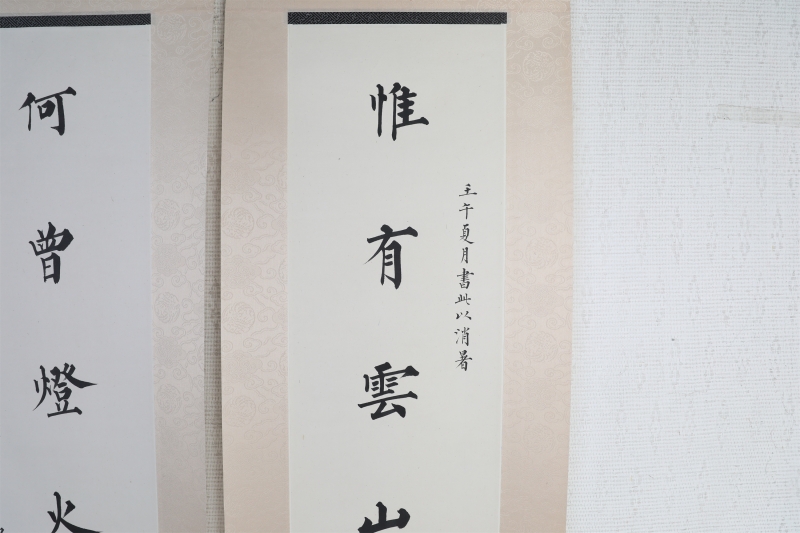 惟有雲山
壬午夏月書此以消暑
何曾燈火